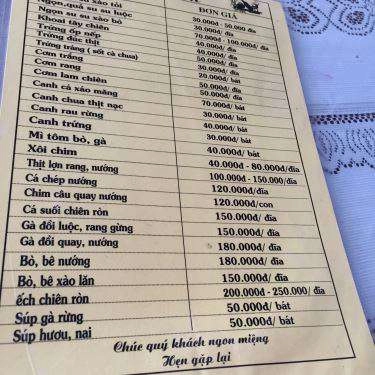 ĐƠN GIÁ
su su xào tỏi
Ngọn,quả su su luộc 30.000đ - 50.000 đĩa
Ngọn su su xào bò
Khoai tây chiên
Trứng ốp nếp
Trứng đúc thịt 40.000đ/ đĩa
Trứng tráng ( sốt cà chua)
Cơm trắng
Cơm rang
Cơm lam chiên
Canh cá xáo măng
Canh chua thịt nạc 70.000đ/ bát
Canh rau rừng 30.000đ/ bát
Canh trứng 40.000đ/ bát
Mì tôm bò, gà 30.000đ/ bát
Xôi chim 40.000đ/ bát
Thịt lợn rang, nướng 40.000đ - 80.000đ/đĩa
Cá chép nướng 100.000đ - 150.000/đĩa
Chim câu quay nướng 120.000đ/đĩa
Cá suối chiên ròn 120.000đ/con
Gà đồi luộc, rang gừng 150.000đ/đĩa
Gà đồi quay, nướng 150.000đ/đĩa
Bò, bê nướng 180.000đ/đĩa
Bò, bê xào lăn 180.000đ/đĩa
ếch chiên ròn 150.000đ/ đĩa
Súp gà rừng 200.000đ - 250.000/ đĩa
Súp hươu, nai 50.000đ/ bát
50.000đ/ bát
Chúc quý khách ngon miệng
Hẹn gặp lại